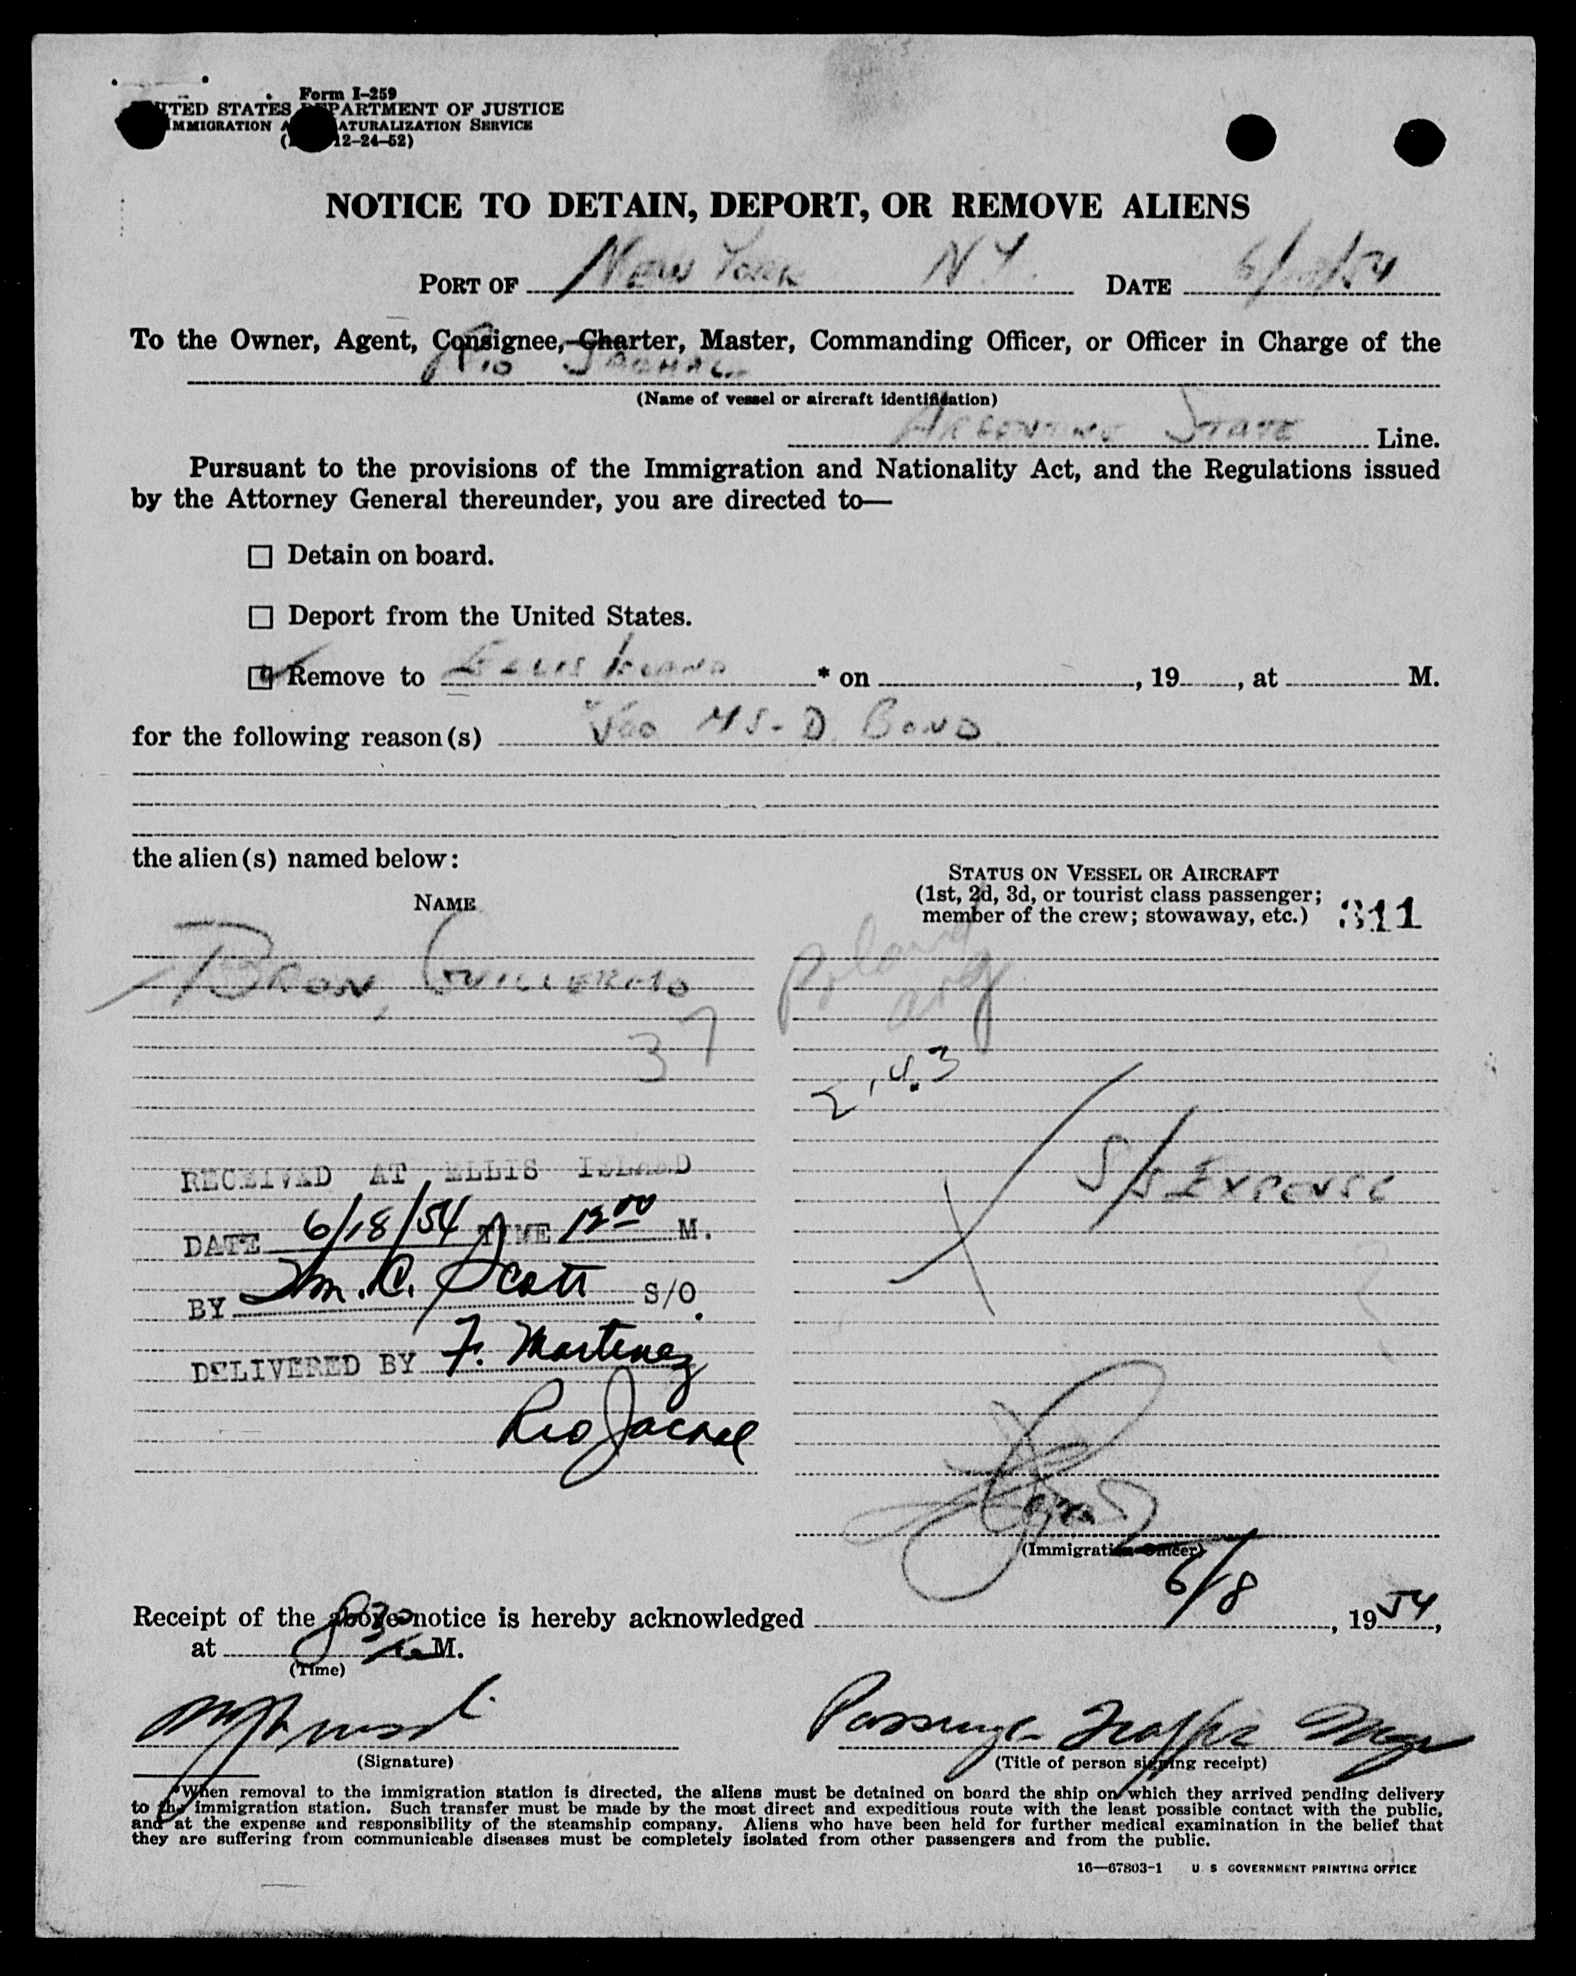 Form I-259
UNITED STATES DEPARTMENT OF JUSTICE
IMMIGRATION AND NATURALIZATION SERVICE
12-24-52)
NOTICE TO DETAIN, DEPORT, OR REMOVE ALIENS
PORT OF New York N Y. DATE 6/18/54
To the Owner, Agent, Consignee, Charter, Master, Commanding Officer, or Officer in Charge of the
Rio Jachal
(Name of vessel or aircraft identification)
Argentine State Line.
Pursuant to the provisions of the Immigration and Nationality Act, and the Regulations issued
by the Attorney General thereunder, you are directed to—
Detain on board.
Deport from the United States.
Remove to Ellis Island * on , 19 , at M.
for the following reason(s) $500 MS-D Bond
the alien(s) named below:
STATUS ON VESSEL OR AIRCRAFT
(1st, 2d, 3d, or tourist class passenger;
member of the crew; stowaway, etc.) 311
NAME
Bron, Guillermo Poland
arg
37
2, 4.3
S/S Expense
RECEIVED AT ELLIS ISLAND
DATE 6/18/54 TIME 12 00 M.
BY Wm. C. Scott S/O.
DELIVERED BY F. Martinez
Rio Jachal
(Immigration Officer)
Receipt of the above notice is hereby acknowledged 6/18, 1954,
at 830 M.
(Time)
Passenger Traffic Mgr
(Signature) (Title of person signing receipt)
*When removal to the immigration station is directed, the aliens must be detained on board the ship on which they arrived pending delivery
to the immigration station. Such transfer must be made by the most direct and expeditious route with the least possible contact with the public,
and at the expense and responsibility of the steamship company. Aliens who have been held for further medical examination in the belief that
they are suffering from communicable diseases must be completely isolated from other passengers and from the public.
16—67803-1 U S GOVERNMENT PRINTING OFFICE